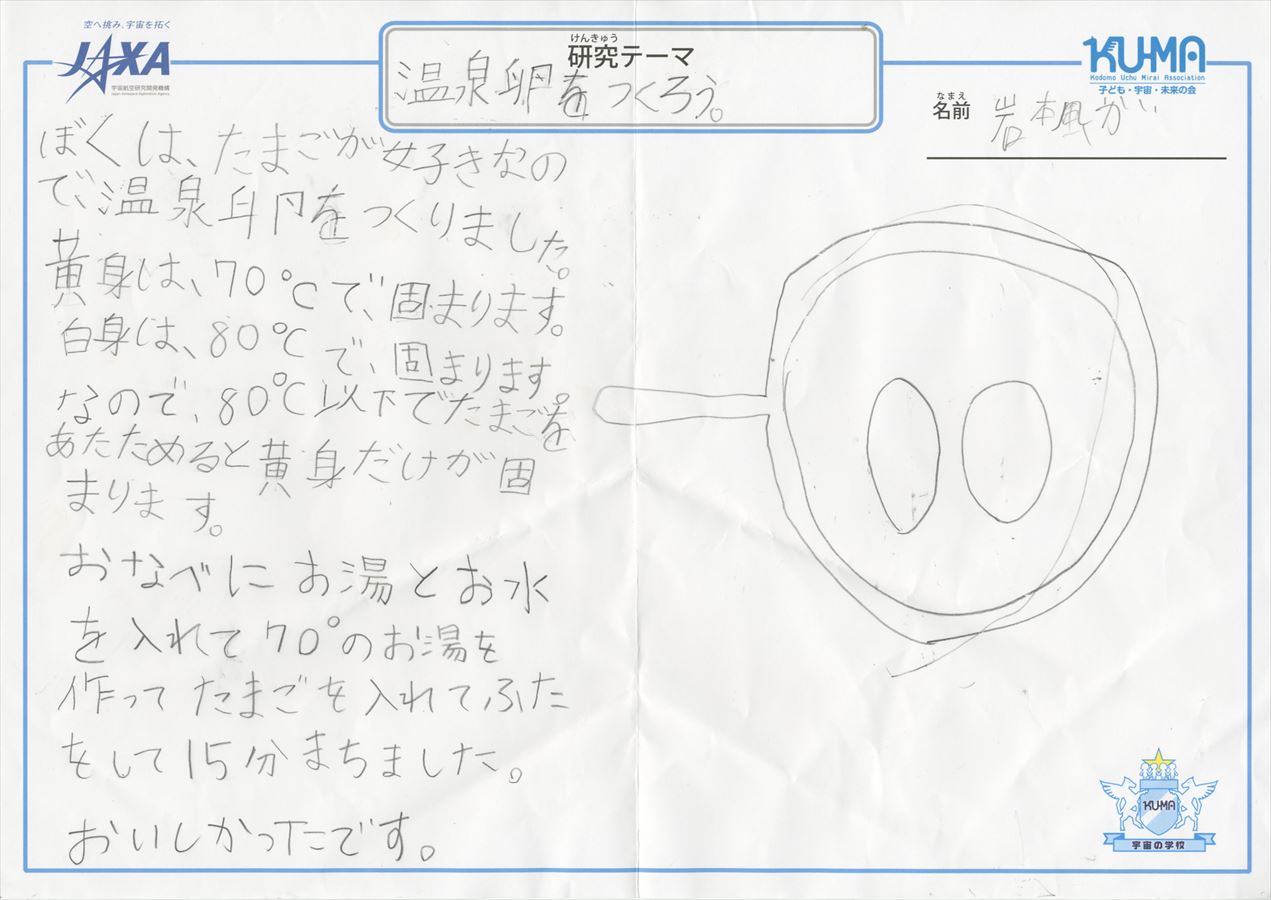 空へ挑み、宇宙を拓く
JAXA
宇宙航空研究開発機構
Japan Aerospace Exploration Agency
けんきゅう
研究テーマ
温泉卵をつくろう。
KU-MA
Kodomo Uchu Mirai Association
子ども・宇宙・未来の会
なまえ
名前 岩本風がい
ぼくは、たまごが好きなの
で、温泉卵をつくりました。
黄身は、70℃で、固まります。
白身は、80℃で、固まります。
なので、80℃以下でたまごを
あたためると黄身だけが固
まります。
おなべにお湯とお水
を入れて70°のお湯を
作ってたまごを入れてふた
をして15分まちました。
おいしかったです。
KU-MA
宇宙の学校